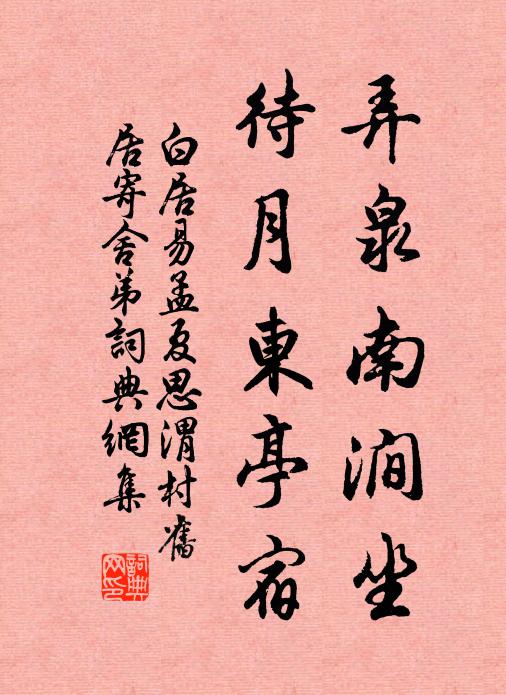 弄泉南澗坐
待月東亭宿
白居易孟夏思渭村舊
居寄舍弟詞典網集
詞典网印